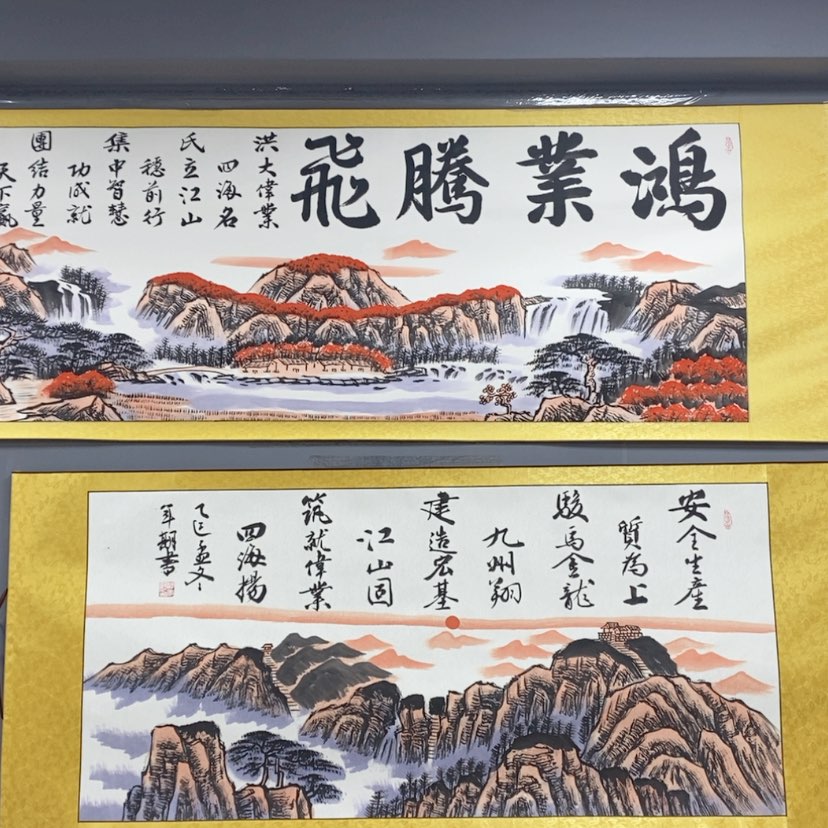 鴻業騰飛
洪大偉業
四海名
氏立江山
穩前行
集中智慧
功成就
團結力量
天下贏
安全生產
質為上
駿馬金龍
九州翔
建造宏基
江山固
筑就偉業
四海揚
乙巳孟冬
年朝書